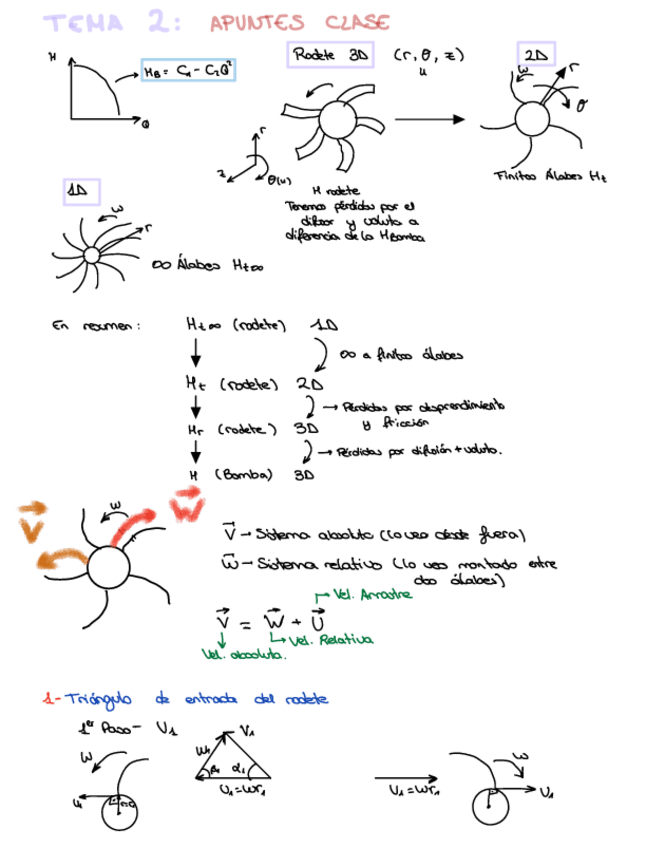 TEMA 2: APUNTES CLASE
H
HB = C1 - C2Q²
Q
Rodete 3D
(r, θ, z)
u
2D
ω
r
θ
r
z
θ(u)
Finitos Álabes Ht
H rodete
Tenemos pérdidas por el
difusor y voluta a
diferencia de la HBomba
1D
ω
r
∞ Álabes Ht∞
En resumen:
Ht∞ (rodete) 1D
∞ a finitos álabes
Ht (rodete) 2D
→ Pérdidas por desprendimiento
y fricción
Hr (rodete) 3D
→ Pérdidas por difusión + voluta.
H (Bomba) 3D
V
ω
W
V → Sistema absoluto (lo veo desde fuera)
W → Sistema relativo (lo veo montado entre
dos álabes)
Vel. Arrastre
V = W + U
Vel. Relativa
Vel. absoluta.
1- Triángulo de entrada del rodete
1er Paso - U1
ω
U1
W1
V1
β1
α1
U1 = ωr1
U1 = ωr1
ω
U1